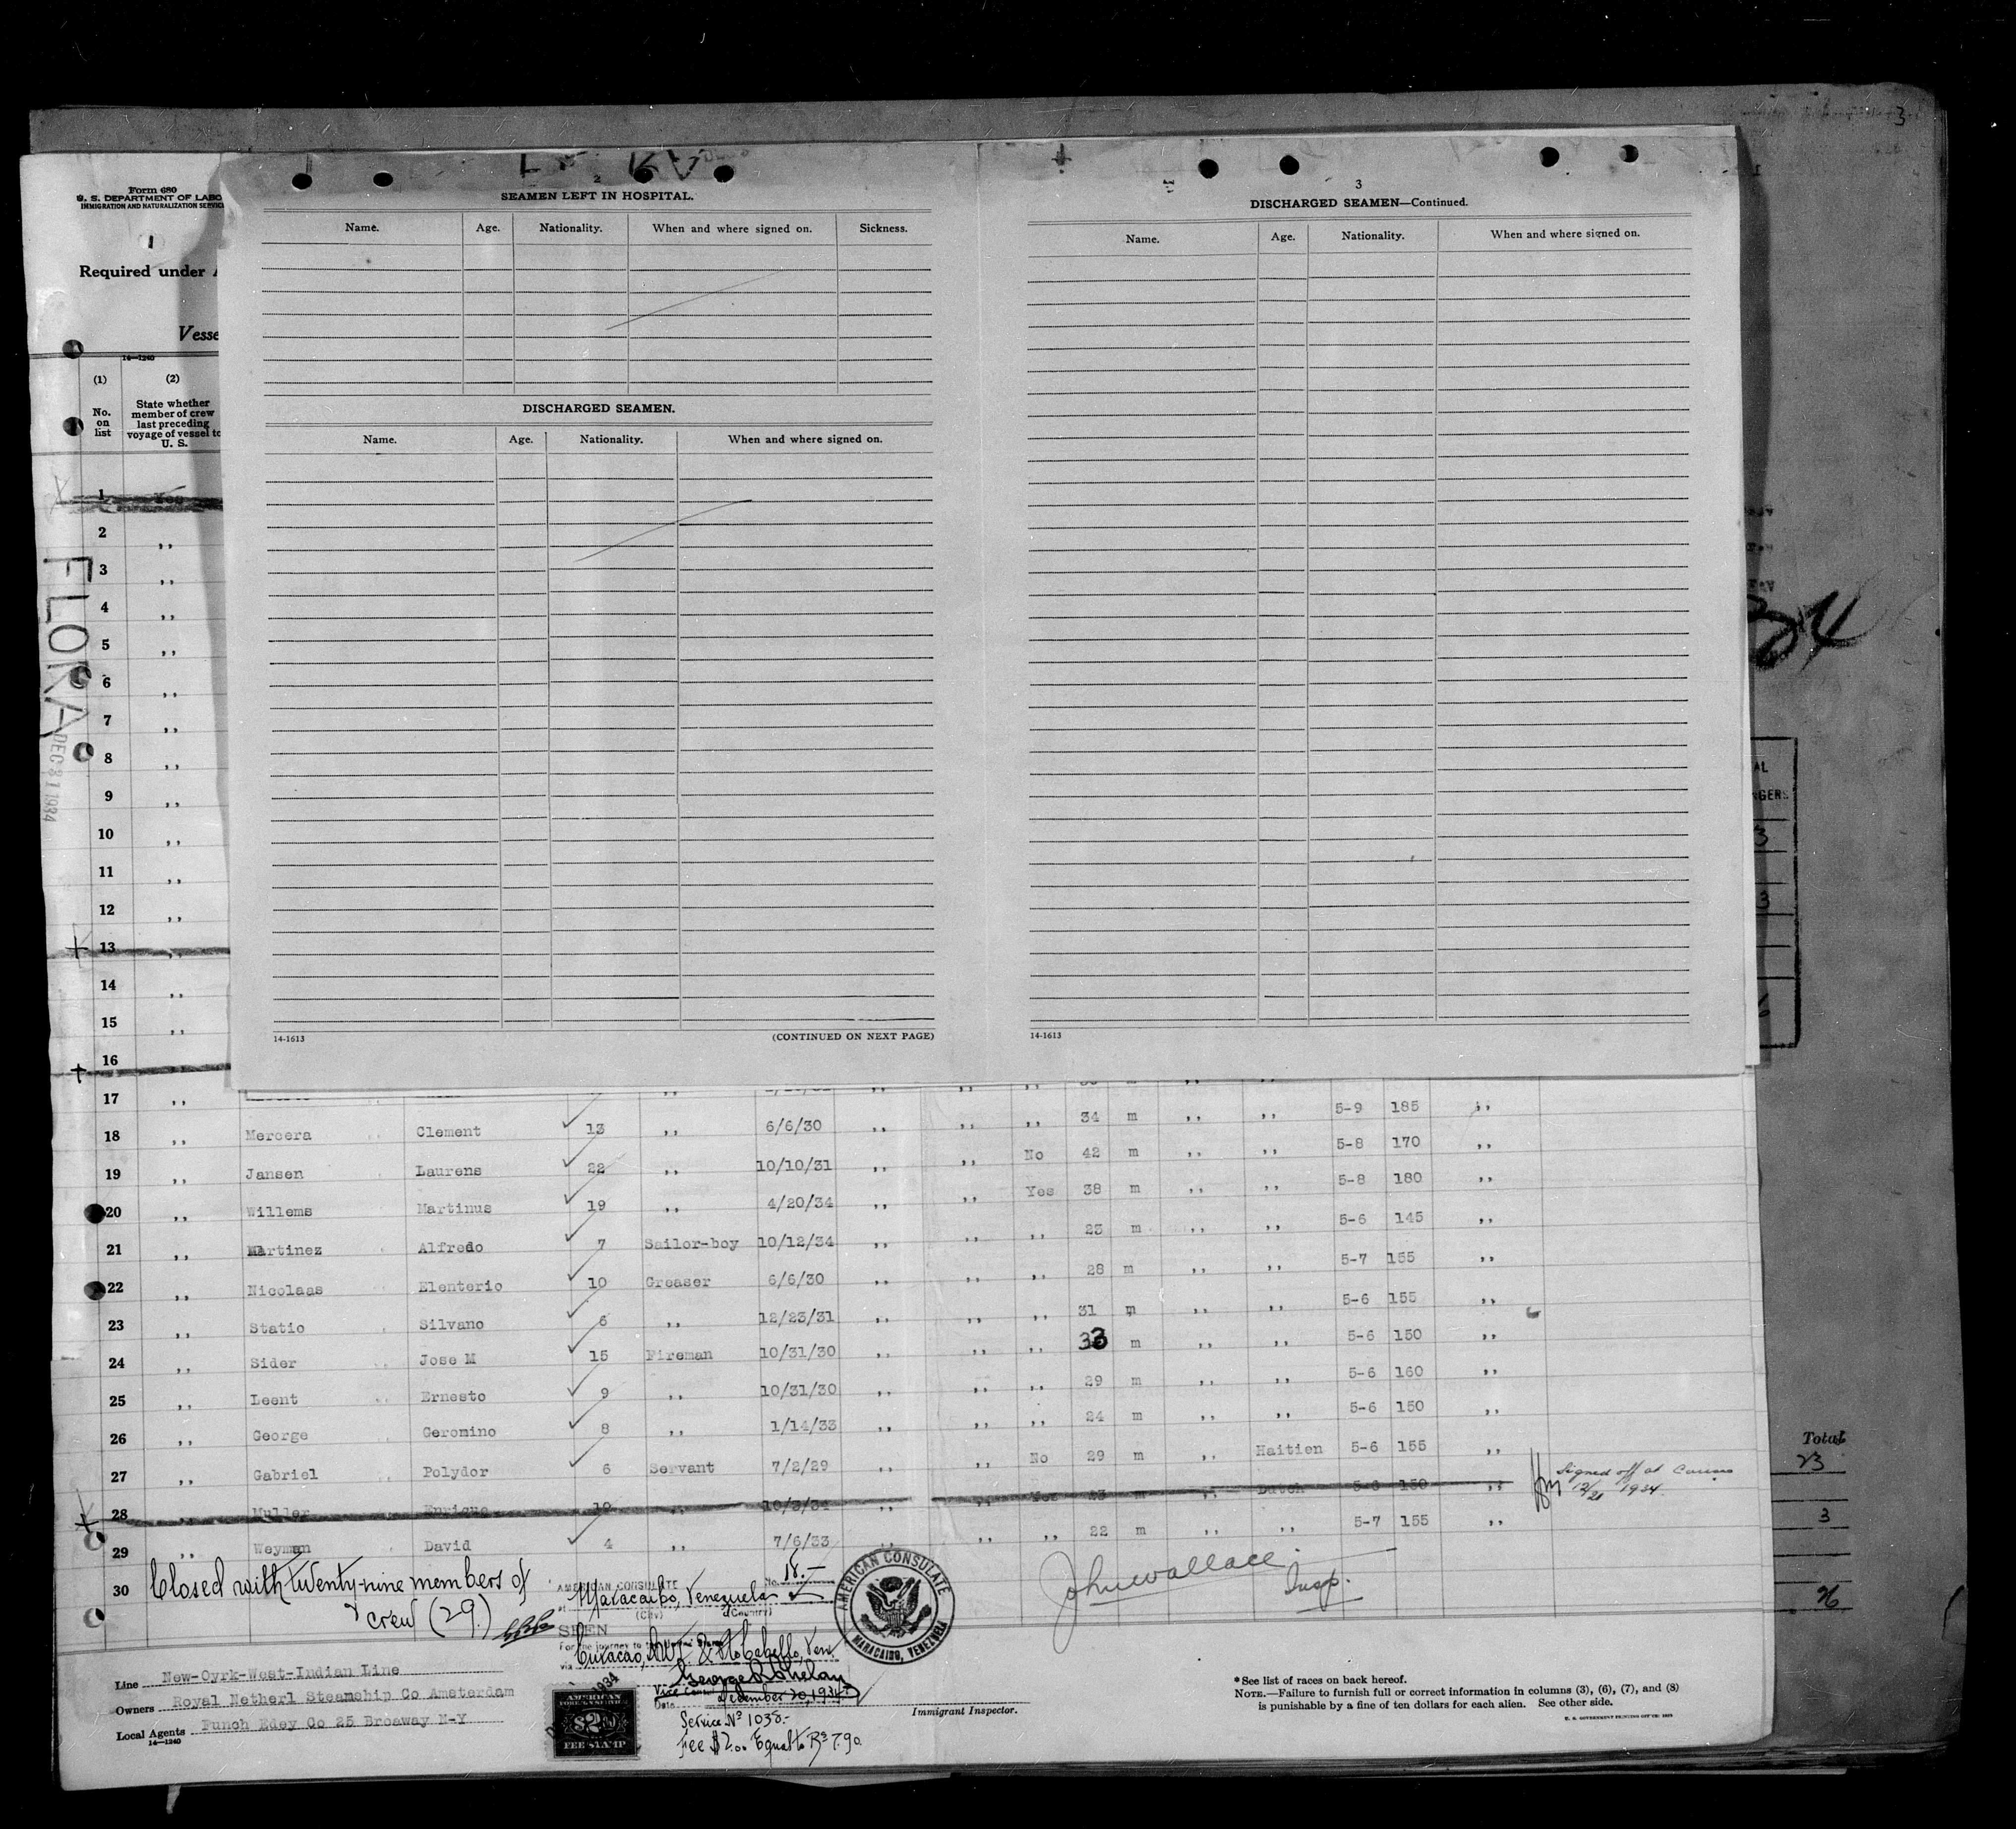 Form 680
U. S. DEPARTMENT OF LABO
IMMIGRATION AND NATURALIZATION SERVIC
1
Required under
Vesse
14—1240
(1) (2)
No. on list
State whether member of crew last preceding voyage of vessel to U. S.
FLORA
DEC 31 1934
2
SEAMEN LEFT IN HOSPITAL.
Name. Age. Nationality. When and where signed on. Sickness.
DISCHARGED SEAMEN.
Name. Age. Nationality. When and where signed on.
14-1613 (CONTINUED ON NEXT PAGE)
3
DISCHARGED SEAMEN—Continued.
Name. Age. Nationality. When and where signed on.
14-1613
3
24
AL
NGERS
3
3
6
1 Yes
2 ,,
3 ,,
4 ,,
5 ,,
6 ,,
7 ,,
8 ,,
9 ,,
10 ,,
11 ,,
12 ,,
13 ,,
14 ,,
15 ,,
16 ,,
17 ,,
18 ,, Mercera Clement 13 ,, 6/6/30 ,, ,, ,, 34 m ,, ,, 5-9 185 ,,
19 ,, Jansen Laurens 22 ,, 10/10/31 ,, ,, No 42 m ,, ,, 5-8 170 ,,
20 ,, Willems Martinus 19 ,, 4/20/34 ,, ,, Yes 38 m ,, ,, 5-8 180 ,,
21 ,, Martinez Alfredo 7 Sailor-boy 10/12/34 ,, ,, ,, 23 m ,, ,, 5-6 145 ,,
22 ,, Nicolaas Elenterio 10 Greaser 6/6/30 ,, ,, ,, 28 m ,, ,, 5-7 155 ,,
23 ,, Statio Silvano 6 ,, 12/23/31 ,, ,, ,, 31 m ,, ,, 5-6 155 ,,
24 ,, Sider Jose M 15 Fireman 10/31/30 ,, ,, ,, 33 m ,, ,, 5-6 150 ,,
25 ,, Leent Ernesto 9 ,, 10/31/30 ,, ,, ,, 29 m ,, ,, 5-6 160 ,,
26 ,, George Geromino 8 ,, 1/14/33 ,, ,, ,, 24 m ,, ,, 5-6 150 ,,
27 ,, Gabriel Polydor 6 Servant 7/2/29 ,, ,, No 29 m ,, Haitien 5-6 155 ,,
28 ,, Muller Enrique 10 ,, 10/3/34 ,, ,, Yes 23 m ,, Dutch 5-6 150 ,, Signed off at
12/21 1934.
29 ,, Weyman David 4 ,, 7/6/33 ,, ,, ,, 22 m ,, ,, 5-7 155 ,,
30 Closed with twenty-nine members of
crew (29.)
Total
23
3
26
No. 18.—
AMERICAN CONSULATE
at Maracaibo, Venezuela
(City) (Country)
SEEN
For the journey to the United States
via Curacao, D.W.I. & Pto Cabello, Ven.
George R Phelan
Vice Consul
Date December 20, 1934
Service Nº 1038.-
Fee $2.00 Equal to Bs 7.90
AMERICAN CONSULATE
MARACAIBO, VENEZUELA
AMERICAN
FOREIGN SERVICE
$2.00
FEE STAMP
1934
John Wallace
Insp.
Immigrant Inspector.
Line New-Oyrk-West-Indian Line
Owners Royal Netherl Steamship Co Amsterdam
Local Agents Funch Edey Co 25 Broaway N-Y
14—1240
*See list of races on back hereof.
NOTE.—Failure to furnish full or correct information in columns (3), (6), (7), and (8)
is punishable by a fine of ten dollars for each alien. See other side.